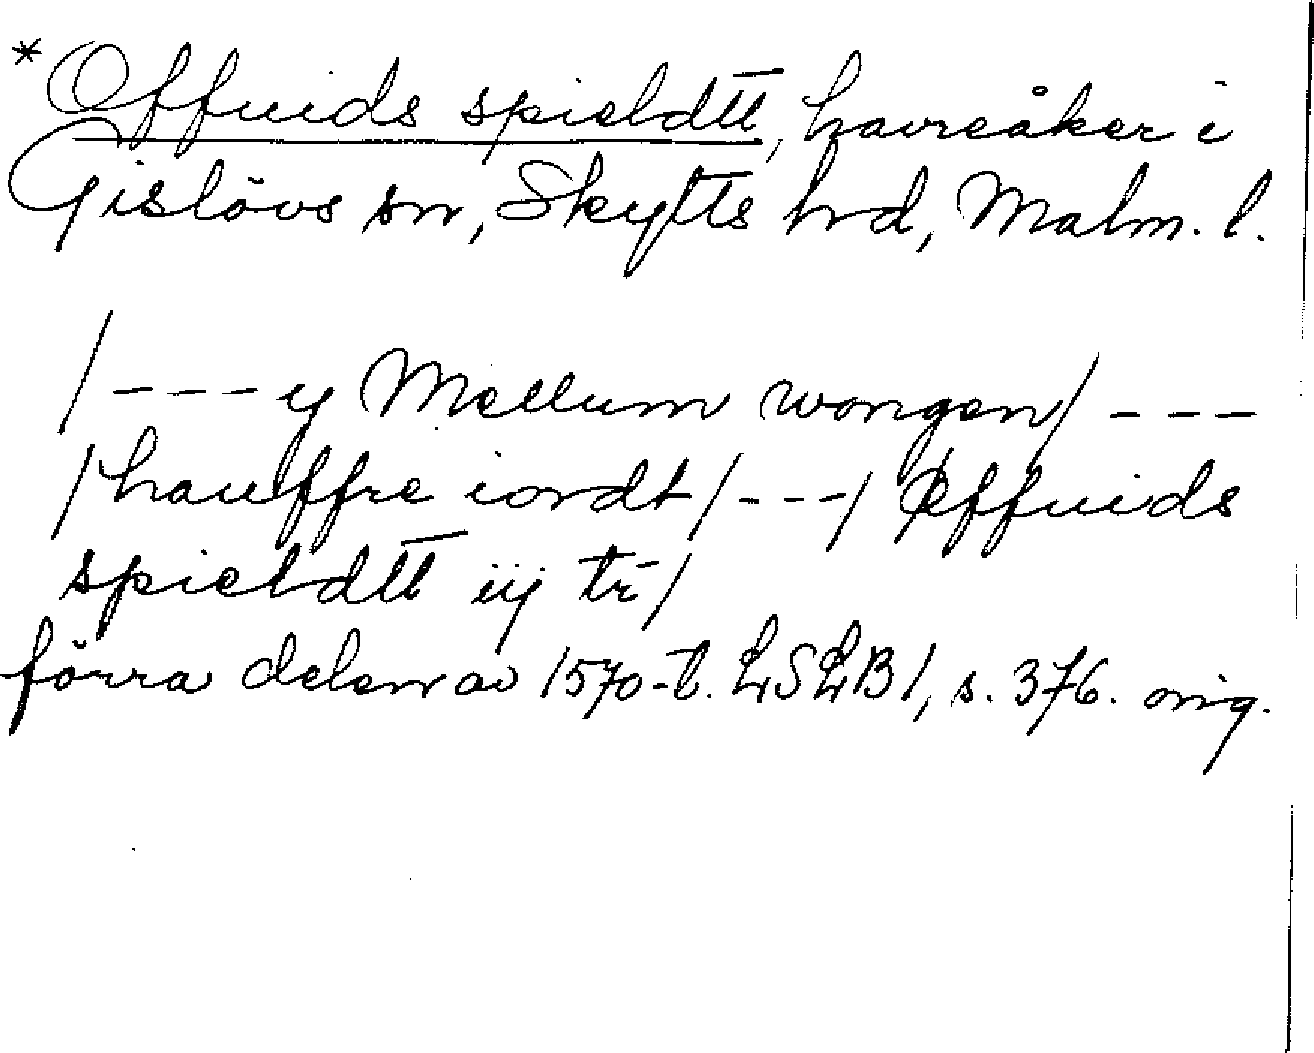 *Øffuids spieldtt, havreåker i
Gislövs sn, Skytts hd, Malm. l.
/---y Mellum wongen/---
/hauffre iordt/---/ Øffuids
spieldtt iij tr̄/
förra delen av 1570-t. LSLB 1, s. 376. orig.